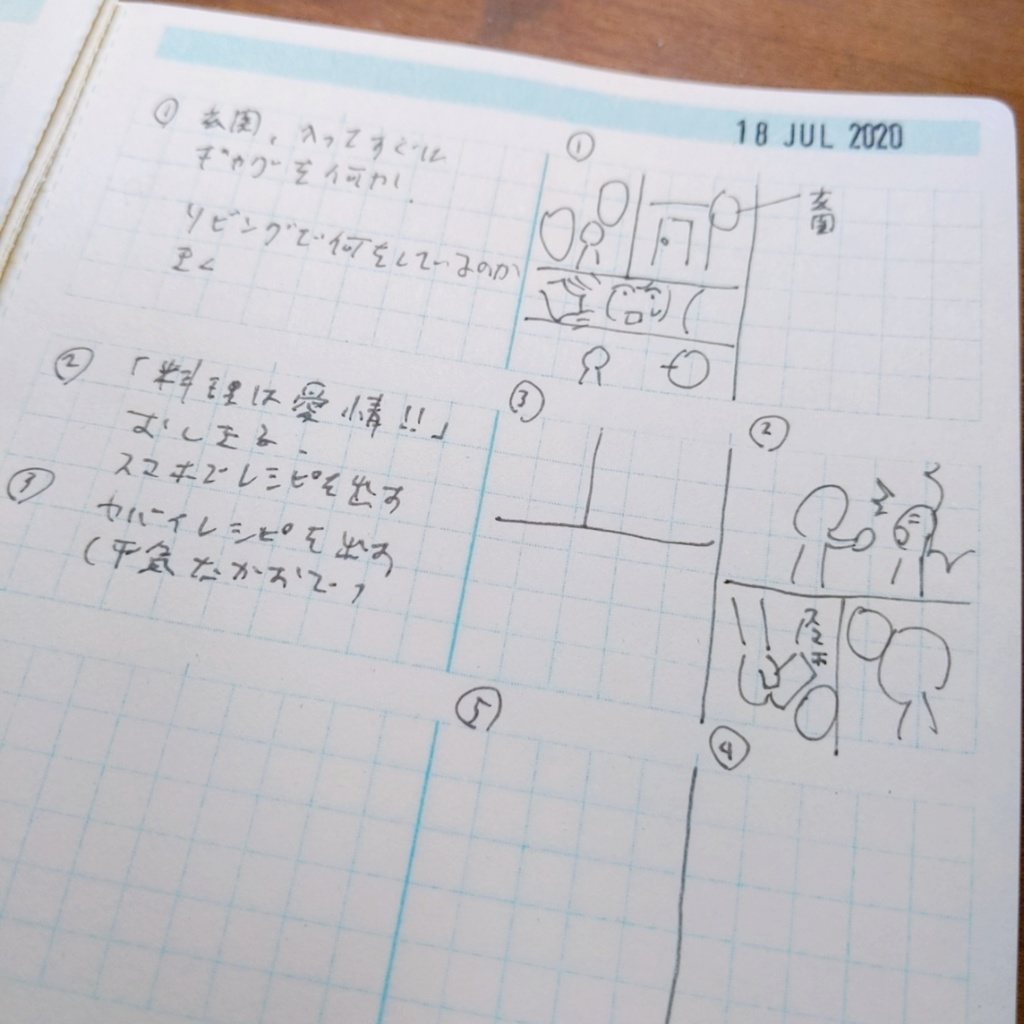 18 JUL 2020
① 玄関、入ってすぐに
ギャグを何か
リビングで何をしているのか
② 「料理は愛情!!」
スマホでレシピを出す
③ ヤバイレシピを出す
(平気なかおで)
①
玄関
③
②
スマホ
⑤
④